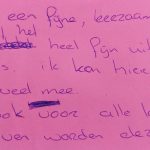 een fijne, leerzam
het
heel fijn uit
s. ik kan hier
veel mee.
ook voor alle l
ven worden